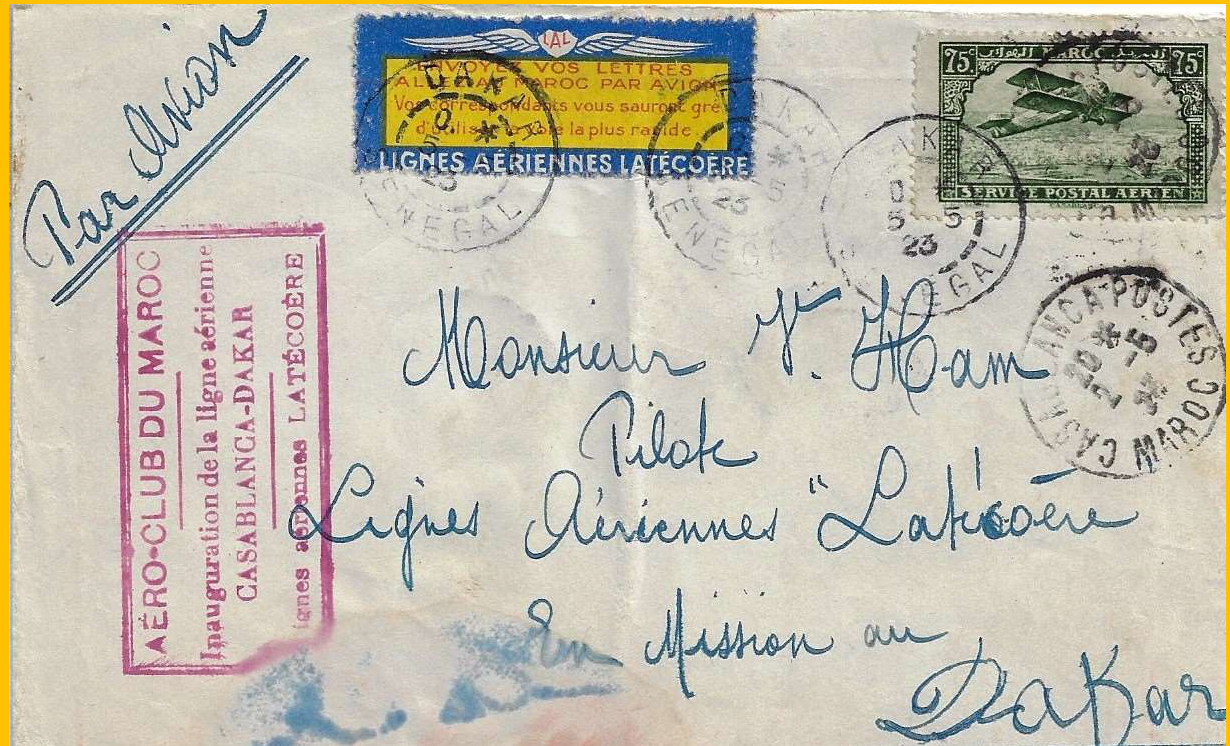 Par Avion
LAL
ENVOYEZ VOS LETTRES
MAROC PAR AVION
Vos correspondants vous sauront gré
d'utiliser la voie la plus rapide.
LIGNES AÉRIENNES LATÉCOÈRE
75c MAROC 75c
البريد الهوائي
SERVICE POSTAL AÉRIEN
DAKAR
SENEGAL
DAKAR
5 5
23
SENEGAL
CASABLANCA POSTES
20 * 2 - 5
MAROC
AÉRO-CLUB DU MAROC
Inauguration de la ligne aérienne
CASABLANCA-DAKAR
ignes aériennes LATÉCOÈRE
Monsieur V. Ham
Pilote
Lignes Aériennes "Latécoère
En Mission au
Dakar